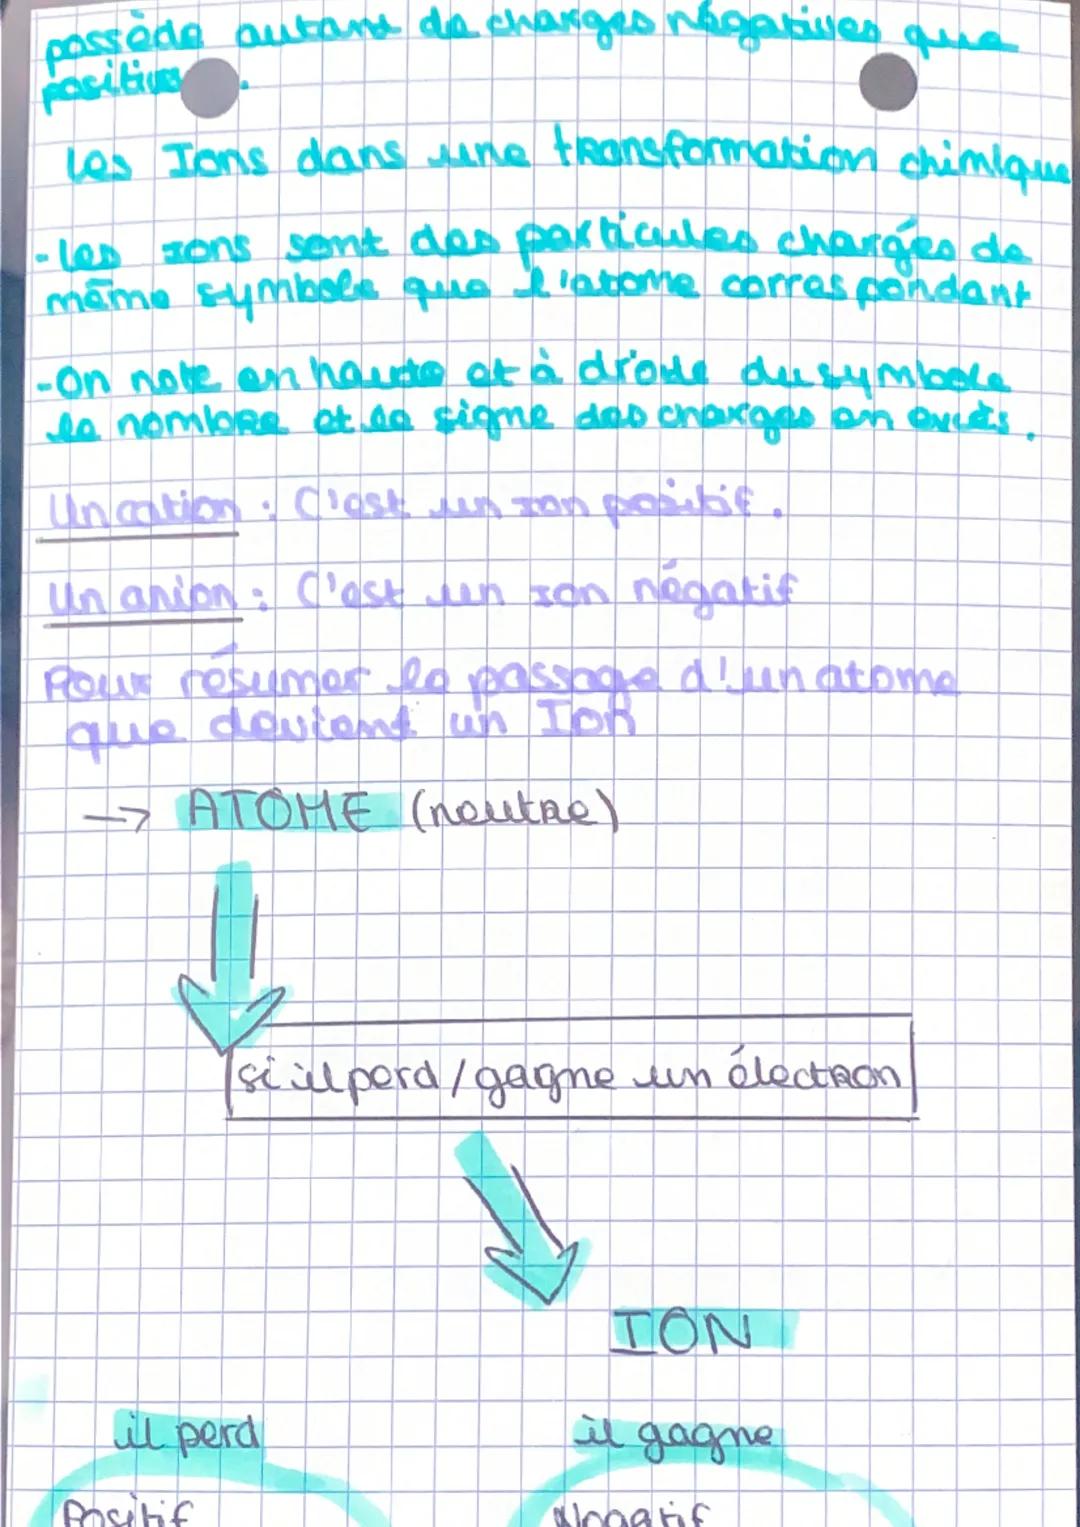 possède autant de charges négatives que
positives.
Les Ions dans une transformation chimique
-les ions sont des particules chargées de
même symbole que l'atome correspondant
-On note en haute et à droite du symbole
le nombre et le signe des charges en excès.
Un cation : C'est un ion positif.
Un anion : C'est un ion négatif
Pour résumer le passage d'un atome
que devient un Ion
→ ATOME (neutre)
si il perd / gagne un électron
ION
il perd il gagne
Positif Négatif